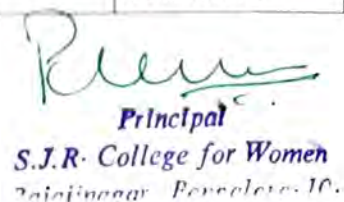 Principal
S.J.R. College for Women
Rajajinagar Bangalore-10.